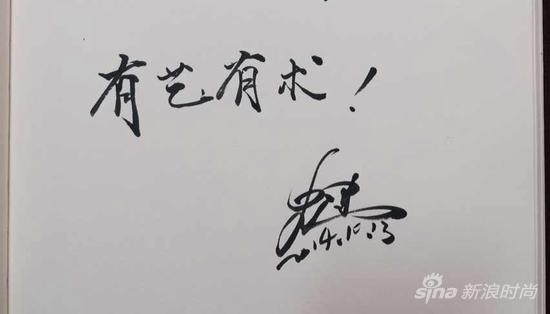 有艺有术！
2014.10.13
sina 新浪时尚